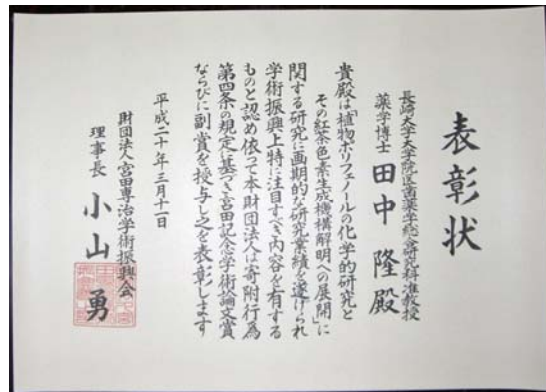 表彰状
長崎大学大学院医歯薬学総合研究科准教授
薬学博士 田中 隆殿
貴殿は「植物ポリフェノールの化学的研究と
その紅茶色素生成機構解明への展開」に
関する研究に画期的な研究業績を遂げられ
学術振興上特に注目すべき内容を有する
ものと認め依って本財団法人は寄附行為
第四条の規定に基づき宮田記念学術論文賞
ならびに副賞を授与し之を表彰します
平成二十年三月十一日
財団法人宮田専治学術振興会
理事長 小山 勇